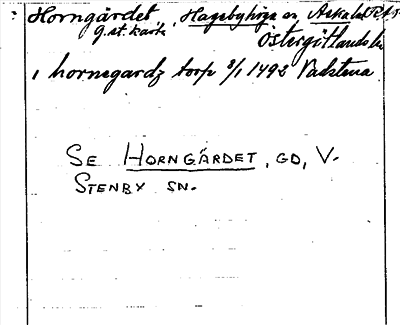 Horngärdet, Hagebyhöga sn, Aska hd
g. st. karta Östergötlands län
i hornegardz torp 8/1 1492 Vadstena
SE HORNGÄRDET, GD, V.
STENBY SN.